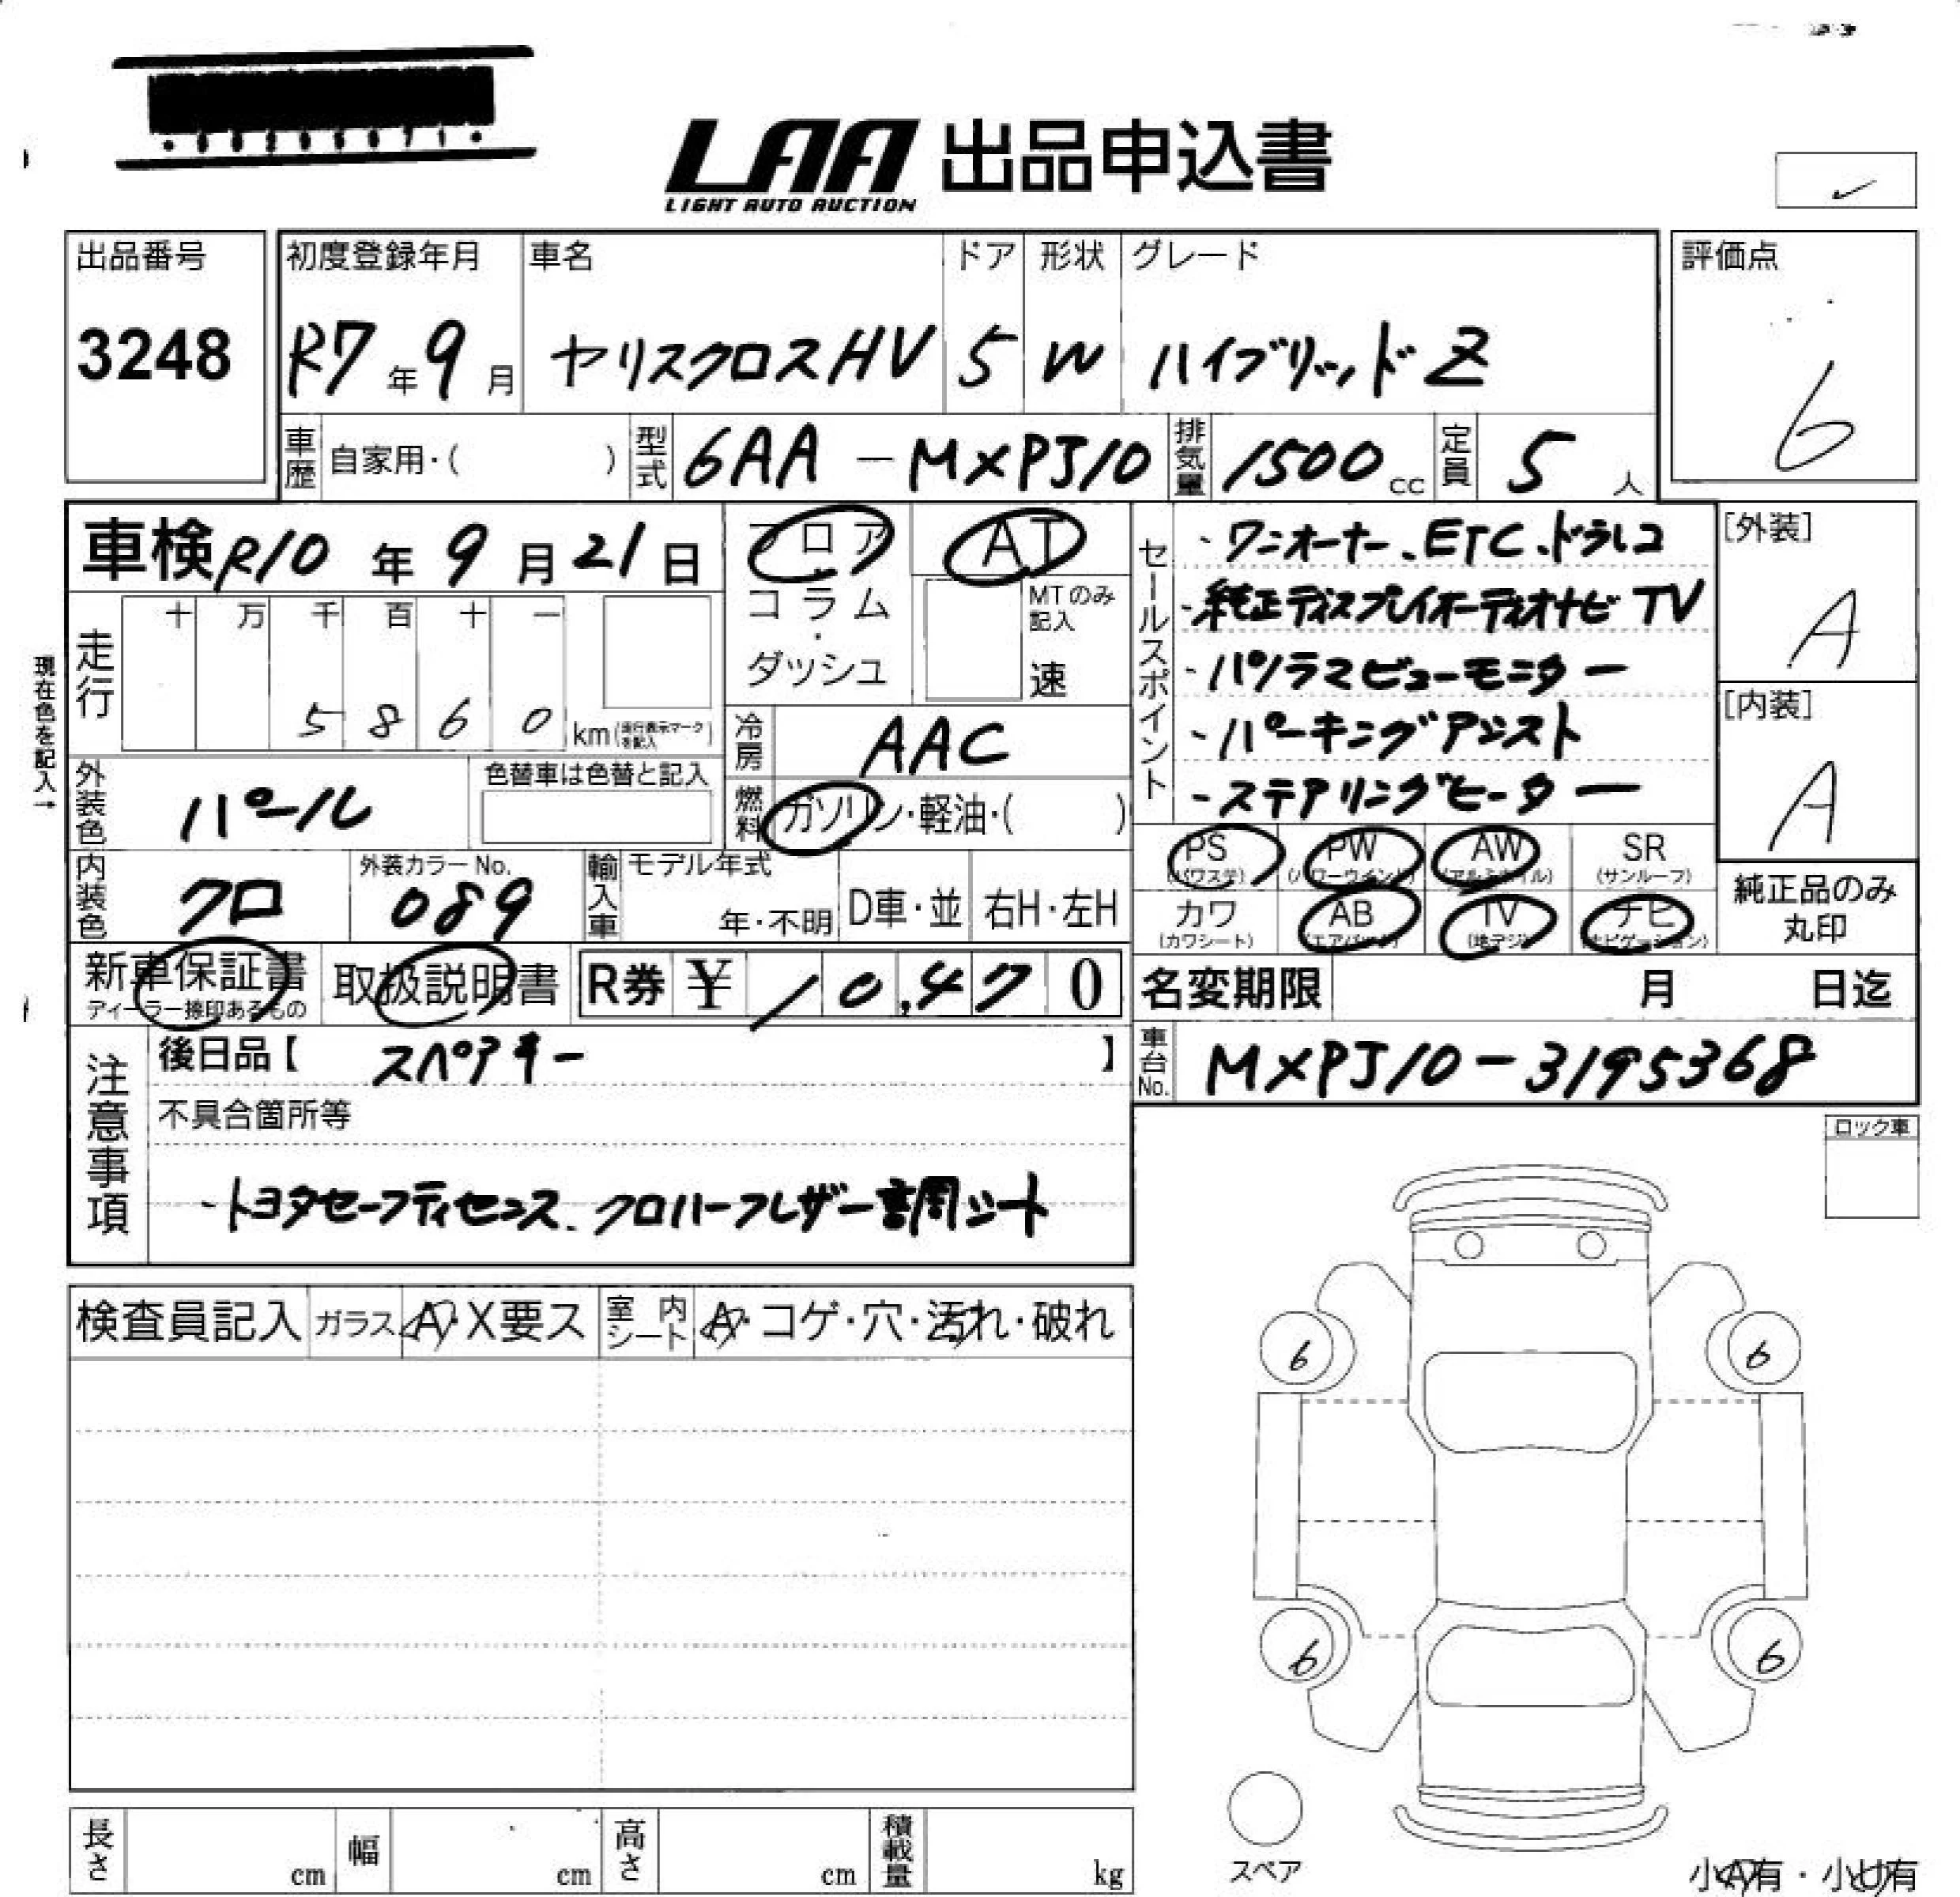 LAA 出品申込書
LIGHT AUTO AUCTION
出品番号
3248
初度登録年月 車名 ドア 形状 グレード
R7年9月 ヤリスクロスHV 5 W ハイブリッドZ
評価点
6
車歴 自家用・( ) 型式 6AA-MXPJ10 排気量 1500cc 定員 5人
車検 R10年9月21日
フロア
コラム
・
ダッシュ
AT
MTのみ記入
速
セールスポイント
・ワンオーナー、ETC、ドラレコ
・純正ディスプレイオーディオナビTV
・パノラマビューモニター
・パーキングアシスト
・ステアリングヒーター
[外装]
A
[内装]
A
現在色を記入→
走行 十 万 千 百 十 一
5 8 6 0 km(走行表示マークを記入)
冷房 AAC
外装色 パール 色替車は色替と記入
燃料 ガソリン・軽油・( )
PS (パワステ) PW (パワーウインド) AW (アルミホイル) SR (サンルーフ)
カワ (カワシート) AB (エアバック) TV (地デジ) ナビ (ナビゲーション)
純正品のみ
丸印
内装色 クロ 外装カラーNo. 089 輸入車 モデル年式 年・不明 D車・並 右H・左H
新車保証書 ディーラー捺印あるもの 取扱説明書 R券 ¥ 10,470
名変期限 月 日迄
車台No. MXPJ10-3195368
注意事項
後日品【 スペアキー 】
不具合箇所等
・トヨタセーフティセンス、クロハーフレザー調シート
ロック車
検査員記入 ガラス A・X要ス 室内シート A・コゲ・穴・汚れ・破れ
6 6
6 6
スペア
長さ cm 幅 cm 高さ cm 積載量 kg
小A有・小凹有